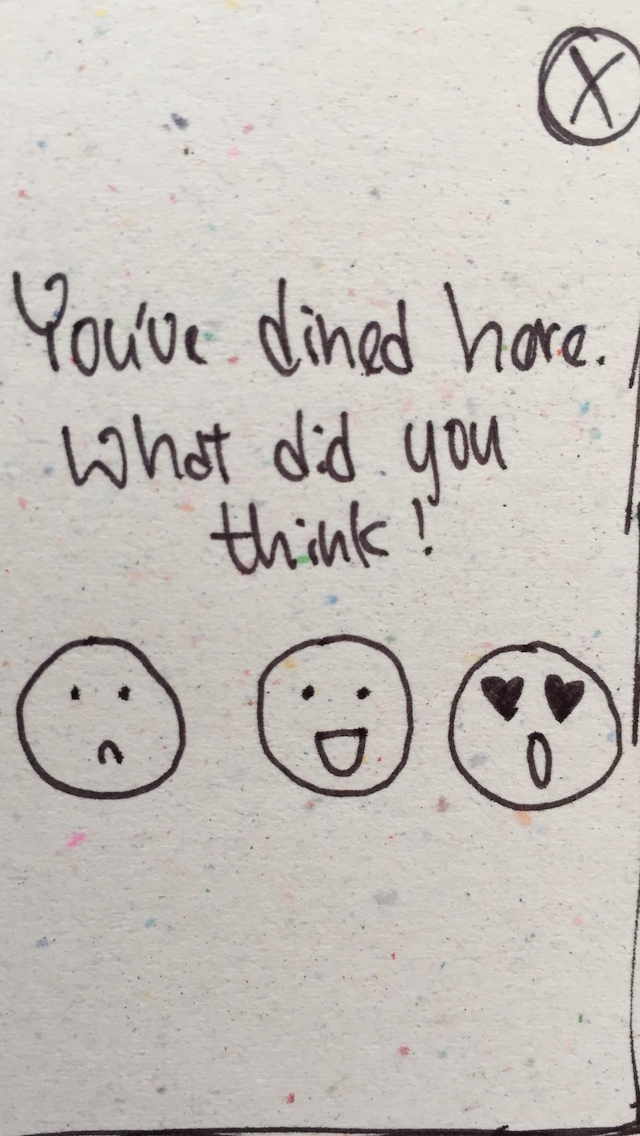 X
You've dined here.
What did you
think!